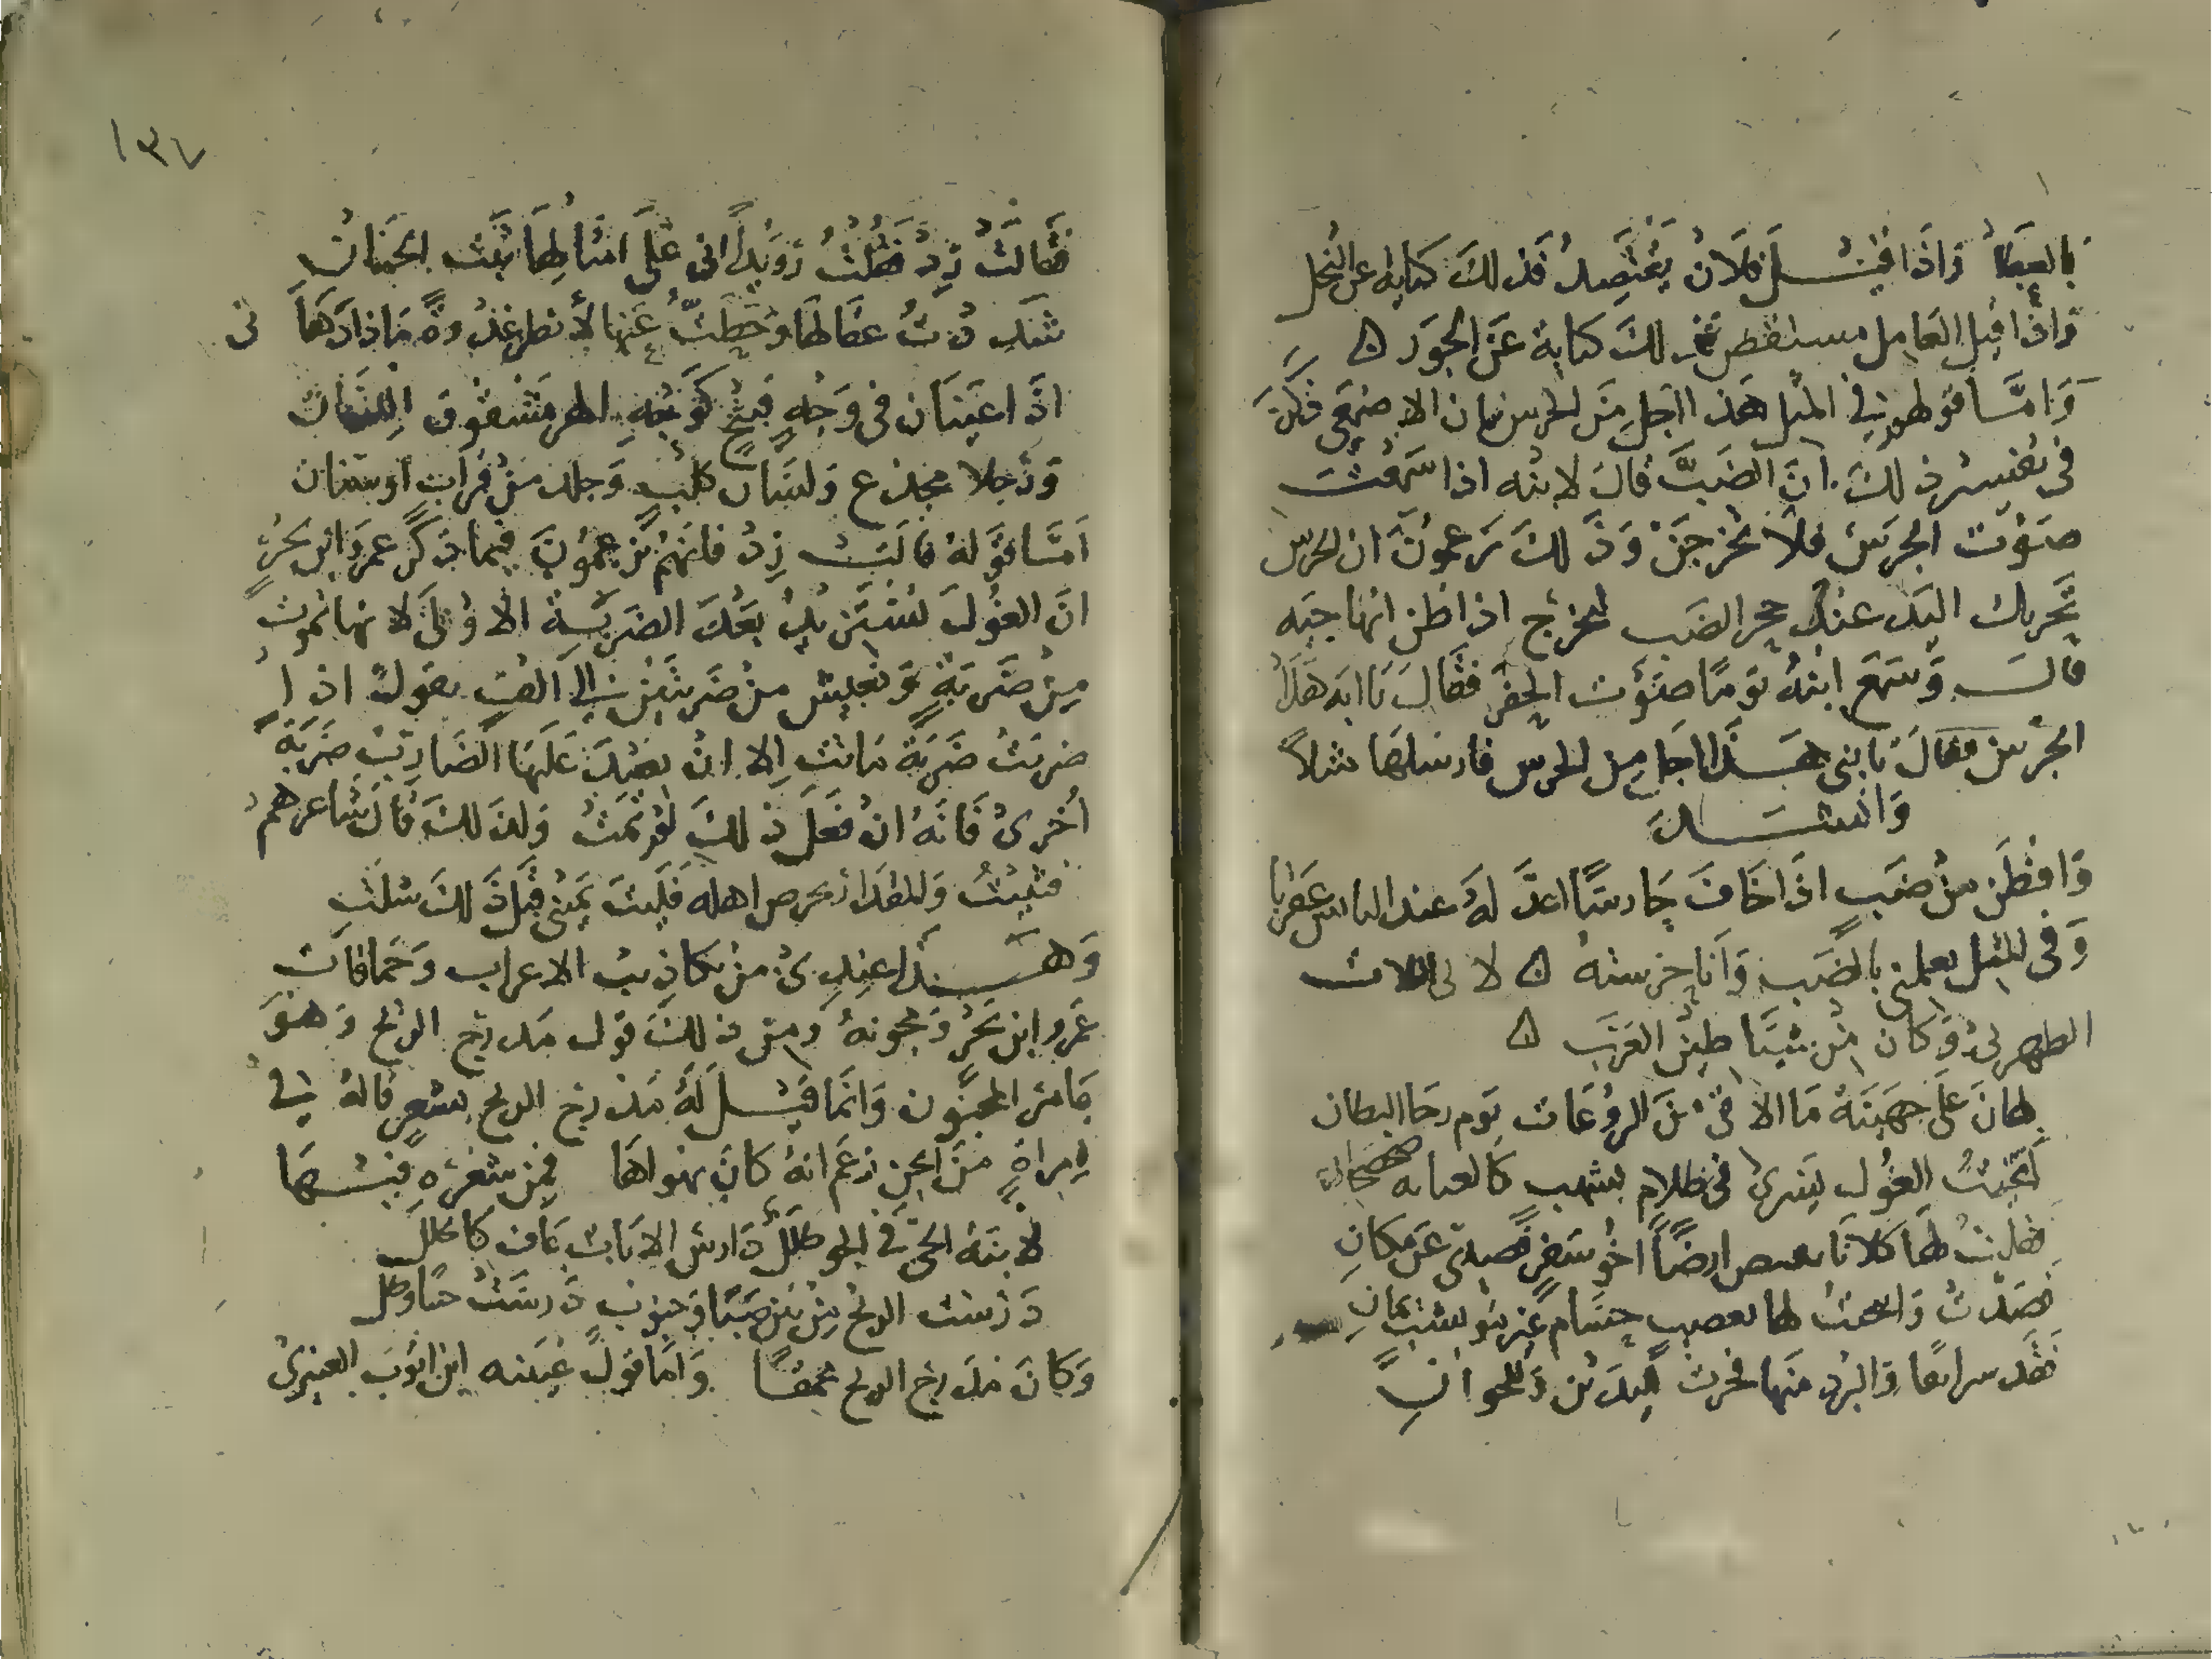 بالعصا واذا قيل فلان يقتصد فذلك كناية عن البخل
واذا قيل العامل مستقص فذلك كناية عن الجور ه
واما قولهم في المثل هذا اجل من الحرس فان الاصمعي ذكر
في تفسير ذلك ان الضب قال لابنه اذا سمعت
صوت الحرس فلا تخرجن وذلك يزعمون ان الحرس
تحريك اليد عند جحر الضب ليخرج اذا ظن انها حية
قال وسمع ابنه يوما صوت الحفر فقال يا ابه هذا
الحرس فقال يا بني هذا اجل من الحرس فارسلها مثلا
وانشد
وافطن من ضب اذا خاف حارشا اعد له عند الباس عقربا
وفي المثل يعلمني بالضب وانا حرشته ه لابي البلاد
الطهوي وكان من شياطين العرب ه
لهان على جهينة ما الاقي من الروعات يوم رحا البطان
لقيت الغول يسري في ظلام بسهب كالعباه صحصحان
فقلت لها كلانا نقض ارض اخو سفر فصدي عن مكان
فصدت وانتحيت لها بعضب حسام غير موتشب يمان
فقد سراتها والبرد منها فخرت لليدين وللجران
١٣٧
فقالت زد فقلت رويدا اني على امثالها ثبت الجنان
شددت عقالها وحططت عنها لأنظر غدوة ماذا دهاني
اذا عينان في وجه قبيح كوجه الهر مشقوق اللسان
ورجلا مخدج ولسان كلب وجلد من فراب او شنان
اما قوله قالت زد فانهم يزعمون فيما ذكر عمرو ابن بحر
ان الغول تستزيد بعد الضربة الاولى لانها تموت
من ضربة وتعيش من ضربتين الى الف يقول اذا
ضربت ضربة ماتت الا ان يعيد عليها الضارب ضربة
أخرى فانه ان فعل ذلك لم تمت ولذلك قال شاعرهم
فثنيت والمقدار يحرص اهله فليت يميني قبل ذلك شلت
وهذا عندي من تكاذيب الاعراب وحماقات
عمرو ابن بحر ومجونه ومن ذلك قول مدرج الريح وهو
عامر المجنون وانما قيل له مدرج الريح بشعر قاله في
امراة من الجن زعم انه كان يهواها فمن شعره فيها
لابنة الجني في الجو طلل دارس الايات عاف كالخلل
درست الريح من بين صبا وجنوب درست حينا وطل
وكان مدرج الريح محمقا واما قول عبيد ابن ايوب العنبري